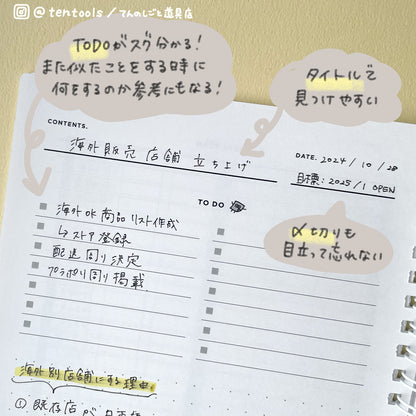 @tentools / てんのしごと道具店
TODOがスグ分かる!
また似たことをする時に
何をするのか参考にもなる!
タイトルで
見つけやすい
CONTENTS.
海外販売 店舗 立ち上げ
DATE. 2024 / 10 / 28
目標: 2025/1 OPEN
TO DO
〆切りも
目立って忘れない
海外OK商品リスト作成
↳ ストア登録
配送周り決定
プラポリ周り掲載
海外別店舗にする理由
① 既存店が